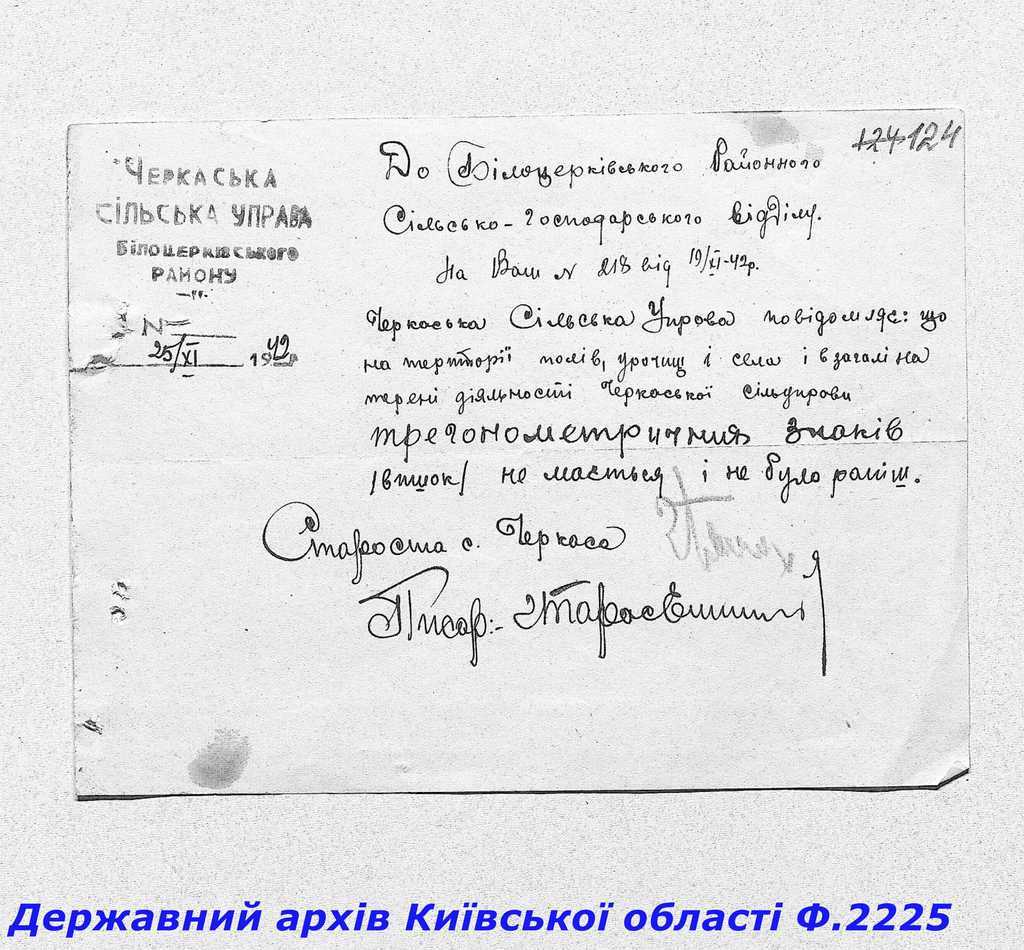 124 124
ЧЕРКАСЬКА
СІЛЬСЬКА УПРАВА
БІЛОЦЕРКІВСЬКОГО
РАЙОНУ
N=
25/XI 1942
До Білоцерківського Районного
Сільсько-Господарського відділу.
На Ваш N 218 від 19/XI-42р.
Черкаська Сільська Управа повідомляє: що
на території полів, урочищ і села і взагалі на
терені діяльності Черкаської сільуправи
трегонометричния знаків
/вишок/ не мається і не було раніш.
Староста с. Черкаса
Писар:-
Державний архів Київської області Ф.2225